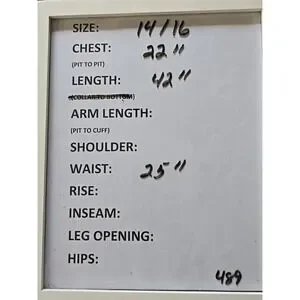 SIZE: 14/16
CHEST: 22"
(PIT TO PIT)
LENGTH: 42"
(COLLAR TO BOTTOM)
ARM LENGTH:
(PIT TO CUFF)
SHOULDER:
WAIST: 25"
RISE:
INSEAM:
LEG OPENING:
HIPS:
489